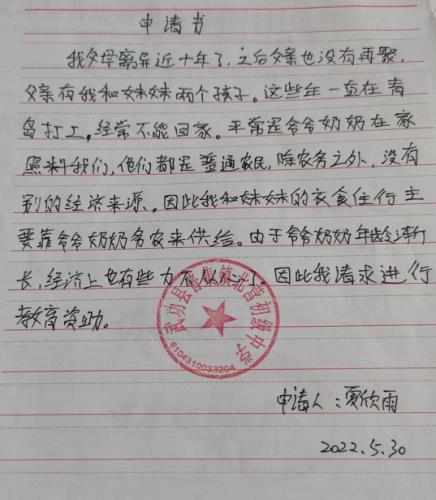 申请书
我父母离异近十年了,之后父亲也没有再娶,
父亲有我和妹妹两个孩子。这些年一直在青
岛打工,经常不能回家。平常是爷爷奶奶在家
照料我们,他们都是普通农民,除农务之外,没有
别的经济来源。因此我和妹妹的衣食住行主
要靠爷爷奶奶务农来供给。由于爷爷奶奶年龄渐
长,经济上也有些力不从心了。因此我请求进行
教育资助。
武功县 镇北营初级中学
6104319033204
申请人:夏欣雨
2022.5.30